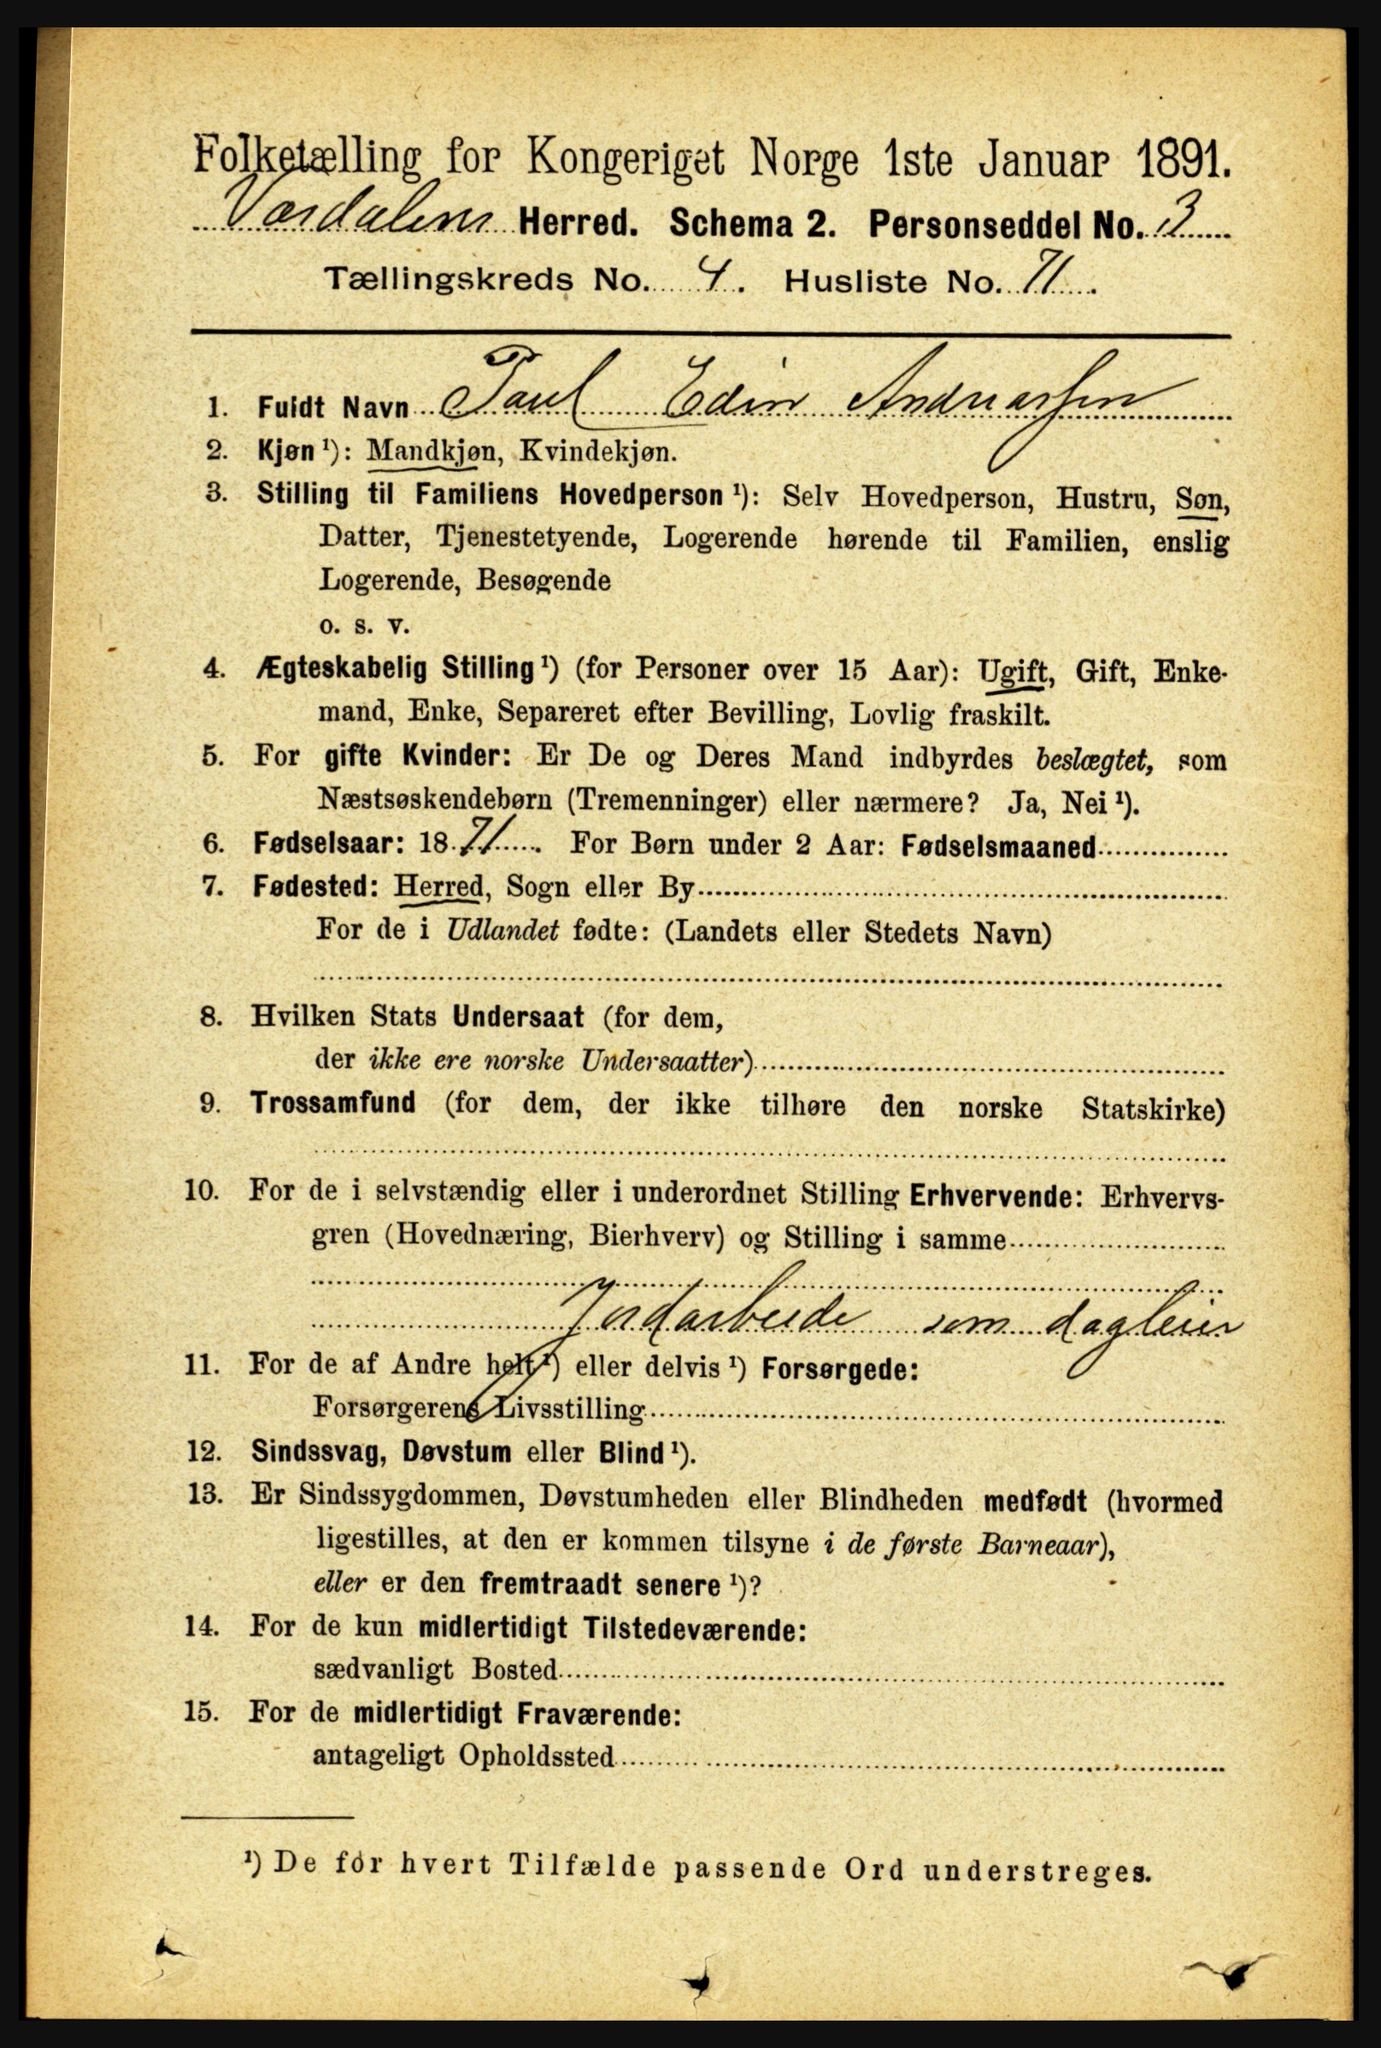 Folketælling for Kongeriget Norge 1ste Januar 1891.
Værdalens Herred. Schema 2. Personseddel No. 3
Tællingskreds No. 4. Husliste No. 71.
1. Fuldt Navn Paul Edin Andreassen
2. Kjøn ¹): Mandkjøn, Kvindekjøn.
3. Stilling til Familiens Hovedperson ¹): Selv Hovedperson, Hustru, Søn,
Datter, Tjenestetyende, Logerende hørende til Familien, enslig
Logerende, Besøgende
o. s. v.
4. Ægteskabelig Stilling ¹) (for Personer over 15 Aar): Ugift, Gift, Enke-
mand, Enke, Separeret efter Bevilling, Lovlig fraskilt.
5. For gifte Kvinder: Er De og Deres Mand indbyrdes beslægtet, som
Næstsøskendebørn (Tremenninger) eller nærmere? Ja, Nei ¹).
6. Fødselsaar: 1871. For Børn under 2 Aar: Fødselsmaaned
7. Fødested: Herred, Sogn eller By
For de i Udlandet fødte: (Landets eller Stedets Navn)
8. Hvilken Stats Undersaat (for dem,
der ikke ere norske Undersaatter)
9. Trossamfund (for dem, der ikke tilhøre den norske Statskirke)
10. For de i selvstændig eller i underordnet Stilling Erhvervende: Erhvervs-
gren (Hovednæring, Bierhverv) og Stilling i samme
Jordarbeide som dagleier
11. For de af Andre helt ¹) eller delvis ¹) Forsørgede:
Forsørgerens Livsstilling
12. Sindssvag, Døvstum eller Blind ¹).
13. Er Sindssygdommen, Døvstumheden eller Blindheden medfødt (hvormed
ligestilles, at den er kommen tilsyne i de første Barneaar),
eller er den fremtraadt senere ¹)?
14. For de kun midlertidigt Tilstedeværende:
sædvanligt Bosted
15. For de midlertidigt Fraværende:
antageligt Opholdssted
¹) De for hvert Tilfælde passende Ord understreges.